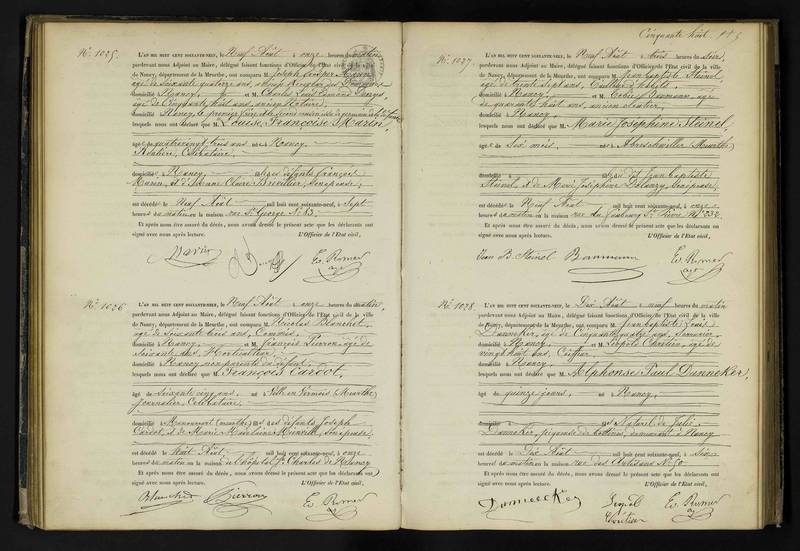 Cinquante huit.
N.º 1025.
L'AN MIL HUIT CENT SOIXANTE-NEUF, le Neuf Août à onze heures du matin
pardevant nous Adjoint au Maire, délégué faisant fonctions d'Officier de l'Etat civil de la ville
de Nancy, département de la Meurthe, ont comparu M. Joseph
âgé de soixante quatorze ans,
domicilié à Nancy, et M. Charles Louis Edmond
âgé de Cinquante huit ans, ancien Notaire,
domicilié à Nancy, le premier
lesquels nous ont déclaré que M. Louise Françoise Marin,
âgé de quatrevingt trois ans né à Nancy,
Rentière, Célibataire,
domicilié à Nancy, des défunts François
Marin, et d'Anne Claire son épouse,
est décédé le Neuf Août mil huit cent soixante-neuf, à Sept
heures du matin en la maison rue St. George N.º 83.
Et après nous être assuré du décès, nous avons dressé le présent acte que les déclarants ont
signé avec nous après lecture. L'Officier de l'Etat civil,
Marin
E. Romer
N.º 1026
L'AN MIL HUIT CENT SOIXANTE-NEUF, le Neuf Août à onze heures du matin,
pardevant nous Adjoint au Maire, délégué faisant fonctions d'Officier de l'Etat civil de la ville
de Nancy, département de la Meurthe, ont comparu M. Nicolas Blanchet,
âgé de Soixante trois ans, Commis,
domicilié à Nancy, et M. François Pierron, âgé de
Soixante ans,
domicilié à Nancy non parents du défunt,
lesquels nous ont déclaré que M. François Cardot,
âgé de Soixante cinq ans, né à Ville en Vermois (Meurthe)
journalier, Célibataire,
domicilié à (Meurthe) des défunts Joseph
Cardot, et de Marie Madeleine son épouse,
est décédé le Huit Août mil huit cent soixante-neuf, à onze
heures du matin en l'hôpital St. Charles de Nancy
Et après nous être assuré du décès, nous avons dressé le présent acte que les déclarants ont
signé avec nous après lecture. L'Officier de l'Etat civil,
Blanchet Pierron E. Romer
N.º 1027
L'AN MIL HUIT CENT SOIXANTE-NEUF, le Neuf Août à trois heures du soir,
pardevant nous Adjoint au Maire, délégué faisant fonctions d'Officier de l'Etat civil de la ville
de Nancy, département de la Meurthe, ont comparu M. Jean Baptiste Steinel,
âgé de trente sept ans, Tailleur d'habits,
domicilié à Nancy, et M. Baumann, âgé
de quarante huit ans, ancien
domicilié à Nancy,
lesquels nous ont déclaré que M. Marie Joséphine Steinel,
âgé de Six mois, né à Abreschwiller (Meurthe)
domicilié à des Jean Baptiste
Steinel, et de Marie Joséphine son épouse,
est décédé le Neuf Août mil huit cent soixante-neuf, à onze
heures du matin en la maison rue du faubourg St. Pierre N.º 232
Et après nous être assuré du décès, nous avons dressé le présent acte que les déclarants ont
signé avec nous après lecture. L'Officier de l'Etat civil,
Jean B. Steinel Baumann E. Romer
N.º 1028
L'AN MIL HUIT CENT SOIXANTE-NEUF, le Dix Août à neuf heures du matin
pardevant nous Adjoint au Maire, délégué faisant fonctions d'Officier de l'Etat civil de la ville
de Nancy, département de la Meurthe, ont comparu M. Jean Baptiste Louis
Danneker, âgé de Cinquante quatre ans,
domicilié à Nancy, et Léopold Chrétien, âgé de
vingt huit ans, Coiffeur,
domicilié à Nancy,
lesquels nous ont déclaré que M. Alphonse Paul Danneker,
âgé de quinze jours, né à Nancy,
domicilié à fils Naturel de Julie
Danneker, piqueuse de bottines, demeurant à Nancy
est décédé le Dix Août mil huit cent soixante-neuf, à
heures du matin en la maison rue des Artisans N.º 50
Et après nous être assuré du décès, nous avons dressé le présent acte que les déclarants ont
signé avec nous après lecture. L'Officier de l'Etat civil,
Danneker Léopold E. Romer
Chrétien